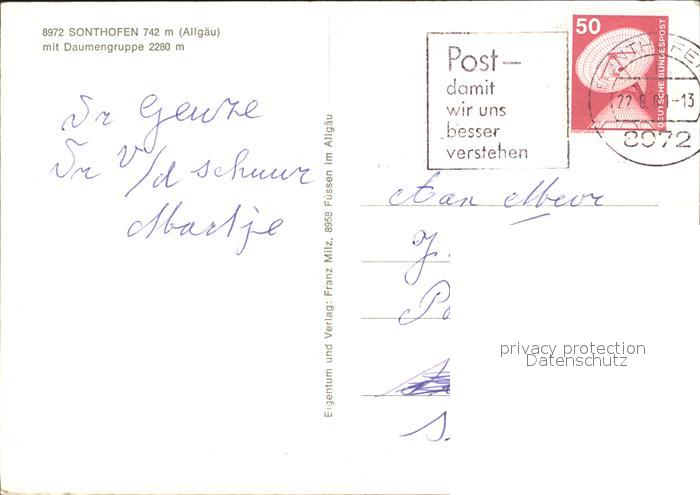 8972 SONTHOFEN 742 m (Allgäu)
mit Daumengruppe 2280 m
Dr
Dr v/d schuur
Martje
Eigentum und Verlag: Franz Milz, 8958 Füssen im Allgäu
Post—
damit
wir uns
besser
verstehen
50
DEUTSCHE BUNDESPOST
22.8.8 -13
8972
Aan Mevr
J.
privacy protection
Datenschutz
S.